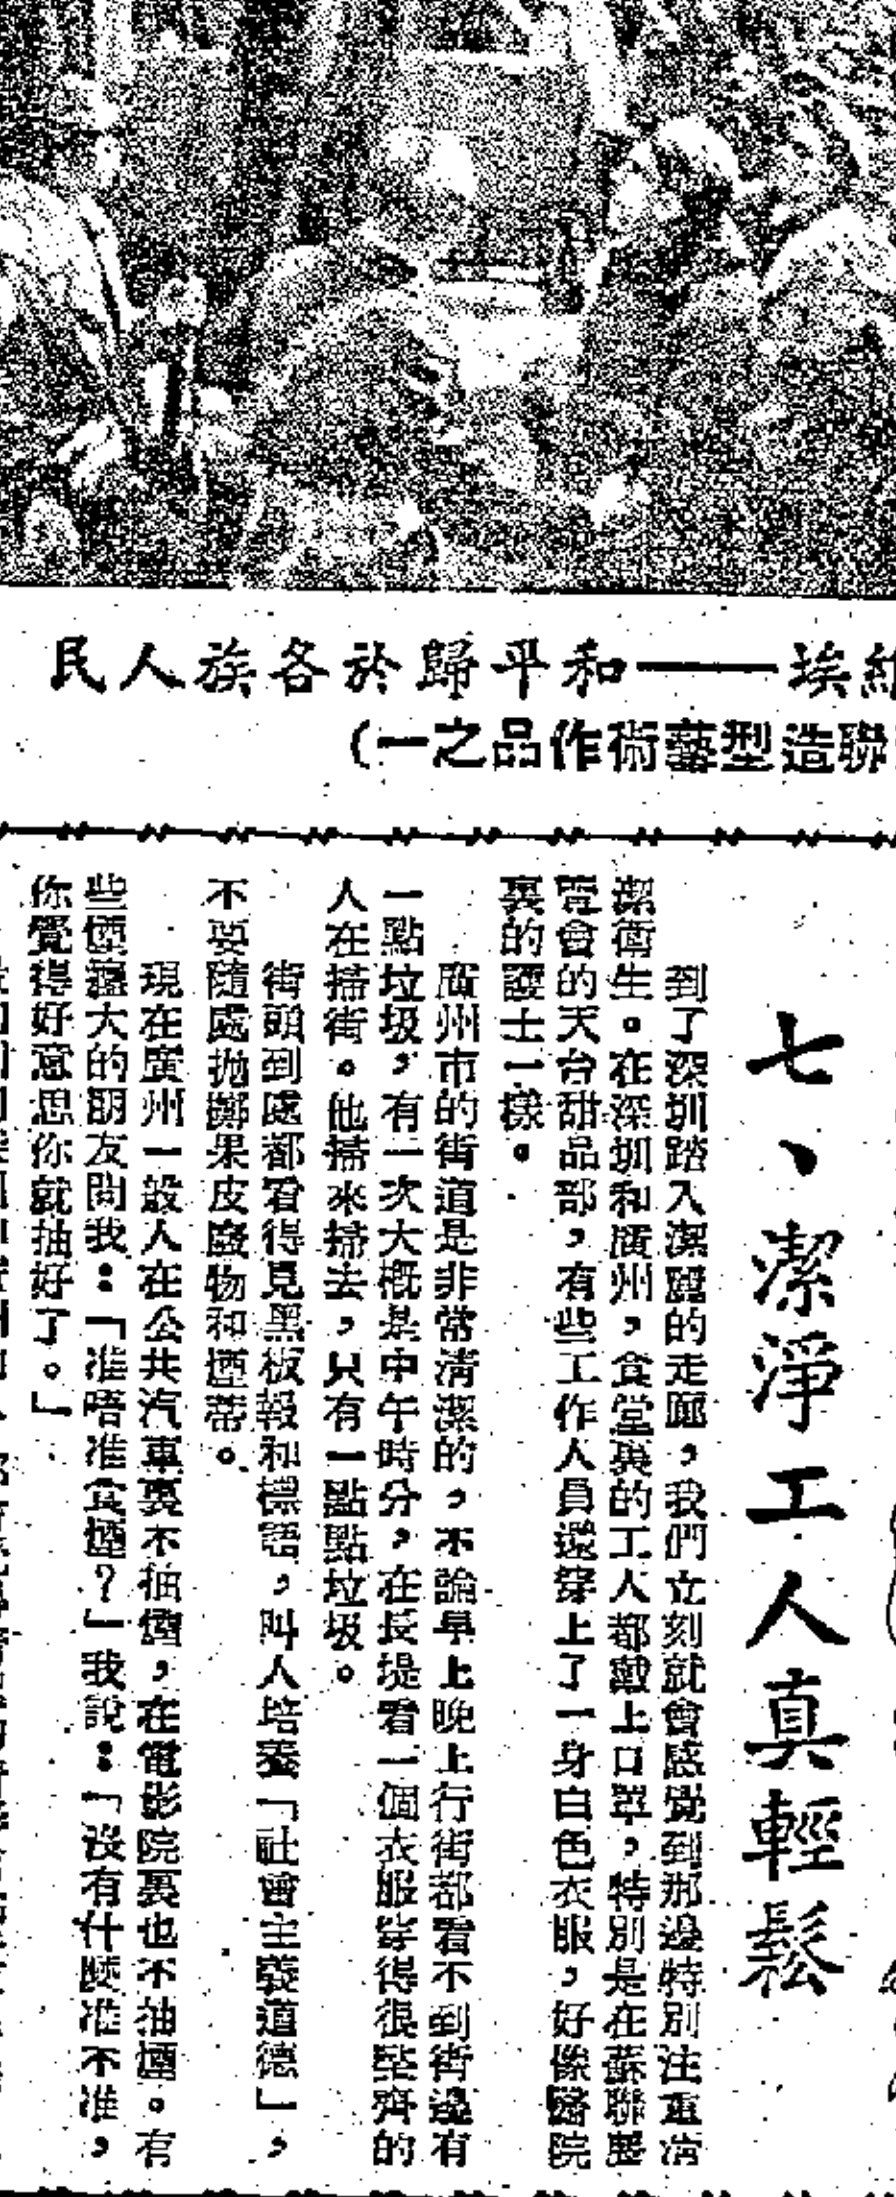 埃——和平歸於各族人民
聯造型藝術作品之一）
七、潔淨工人真輕鬆
到了深圳踏入潔麗的走廊，我們立刻就會感覺到那邊特別注重清
潔衛生。在深圳和廣州，食堂裏的工人都戴上口罩，特別是在蘇聯展
覽會的天台甜品部，有些工作人員還穿上了一身白色衣服，好像醫院
裏的護士一樣。
廣州市的街道是非常清潔的，不論早上晚上行街都看不到街邊有
一點垃圾，有一次大概是中午時分，在長堤看一個衣服穿得很整齊的
人在掃街。他掃來掃去，只有一點點垃圾。
街頭到處都看得見黑板報和標語，叫人培養「社會主義道德」，
不要隨處拋擲果皮廢物和煙蒂。
現在廣州一般人在公共汽車裏不抽煙，在電影院裏也不抽煙。有
些煙癮大的朋友問我：「准唔准食煙？」我說：「沒有什麽准不准，
你覺得好意思你就抽好了。」